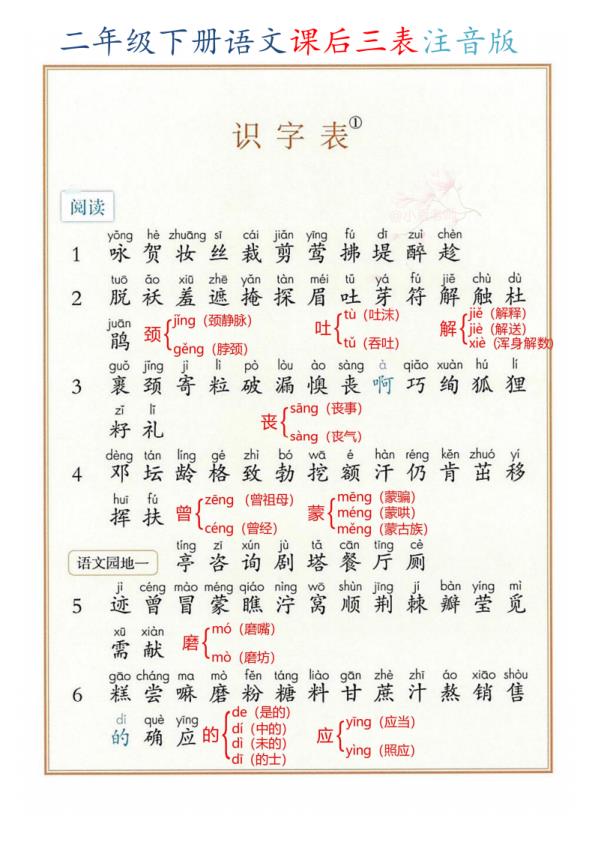 二年级下册语文课后三表注音版
识字表①
阅读
yǒng hè zhuāng sī cái jiǎn yīng fú dī zuì chèn
1 咏 贺 妆 丝 裁 剪 莺 拂 堤 醉 趁
tuō ǎo xiū zhē yǎn tàn méi tǔ yá fú jiě chù dù
2 脱 袄 羞 遮 掩 探 眉 吐 芽 符 解 触 杜
juān
鹃
颈 jǐng（颈静脉） gěng（脖颈）
吐 tù（吐沫） tǔ（吞吐）
解 jiě（解释） jiè（解送） xiè（浑身解数）
guǒ jǐng jì lì pò lòu ào sàng à qiǎo xuàn hú lí
3 裹 颈 寄 粒 破 漏 懊 丧 啊 巧 绚 狐 狸
zǐ lǐ
籽 礼
丧 sāng（丧事） sàng（丧气）
dèng tán líng gé zhì bó wā é hàn réng kěn zhuó yí
4 邓 坛 龄 格 致 勃 挖 额 汗 仍 肯 茁 移
huī fú
挥 扶
曾 zēng（曾祖母） céng（曾经）
蒙 mēng（蒙骗） méng（蒙哄） měng（蒙古族）
tíng zī xún jù tǎ cān tīng cè
语文园地一 亭 咨 询 剧 塔 餐 厅 厕
jì céng mào méng qiáo nìng wō shùn jīng jí bàn yíng mì
5 迹 曾 冒 蒙 瞧 泞 窝 顺 荆 棘 瓣 莹 觅
xū xiàn
需 献
磨 mó（磨嘴） mò（磨坊）
gāo cháng ma mò fěn táng liào gān zhè zhī áo xiāo shòu
6 糕 尝 嘛 磨 粉 糖 料 甘 蔗 汁 熬 销 售
dí què yīng
的 确 应
的 de（是的） dí（中的） dì（未的） dī（的士）
应 yīng（应当） yìng（照应）